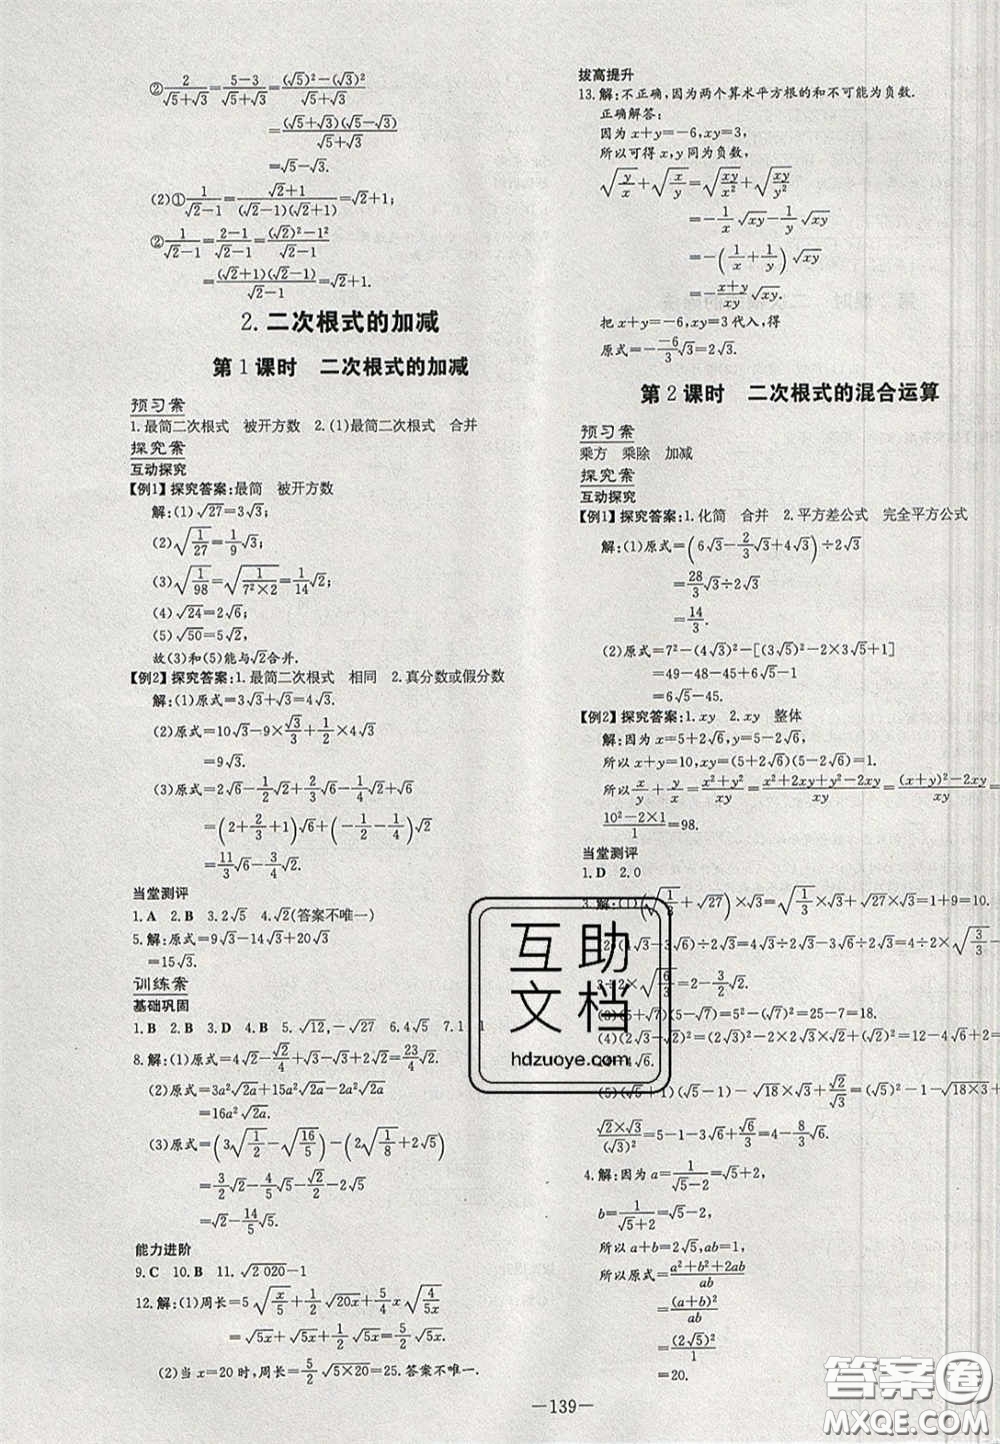 ②2/(√5+√3)=(5−3)/(√5+√3)=((√5)²−(√3)²)/(√5+√3)
=(√5+√3)(√5−√3)/(√5+√3)
=√5−√3.
(2)①1/(√2−1)=(√2+1)/((√2−1)(√2+1));
②1/(√2−1)=(2−1)/(√2−1)=((√2)²−1²)/(√2−1)
=(√2+1)(√2−1)/(√2−1)=√2+1.
2.二次根式的加减
第1课时 二次根式的加减
预习案
1.最简二次根式 被开方数 2.(1)最简二次根式 合并
探究案
互动探究
【例1】探究答案:最简 被开方数
解:(1)√27=3√3;
(2)√(1/27)=1/9√3;
(3)√(1/98)=√(1/(7²×2))=1/14√2;
(4)√24=2√6;
(5)√50=5√2,
故(3)和(5)能与√2合并.
【例2】探究答案:1.最简二次根式 相同 2.真分数或假分数
解:(1)原式=3√3+√3=4√3.
(2)原式=10√3−9×√3/3+1/2×4√3
=9√3.
(3)原式=2√6−1/2√2+2/3√6−1/4√2+√6
=(2+2/3+1)√6+(−1/2−1/4)√2
=11/3√6−3/4√2.
当堂测评
1.A 2.B 3.2√5 4.√2(答案不唯一)
5.解:原式=9√3−14√3+20√3
=15√3.
训练案
基础巩固
1.B 2.B 3.B 4.B 5.√12,−√27 6.4√5 7.1 1
8.解:(1)原式=4√2−√2/4+√3−√3+2√2=23/4√2.
(2)原式=3a²√2a+15a²√2a−2a²√2a
=16a²√2a.
(3)原式=(3√(1/2)−√(16/5))−(2√(1/8)+2√5)
=3/2√2−4/5√5−√2/2−2√5
=√2−14/5√5.
能力进阶
9.C 10.B 11.√2 020−1
12.解:(1)周长=5√(x/5)+1/2√20x+5/4x√(4/5x)
=√5x+√5x+1/2√5x=5/2√5x.
(2)当x=20时,周长=5/2√(5×20)=25.答案不唯一.
拔高提升
13.解:不正确,因为两个算术平方根的和不可能为负数.
正确解答:
因为x+y=−6,xy=3,
所以可得x,y同为负数,
√(y/x)+√(x/y)=√(xy/x²)+√(xy/y²)
=−1/x√xy−1/y√xy
=−(1/x+1/y)√xy
=−(x+y)/xy√xy.
把x+y=−6,xy=3代入,得
原式=−(−6/3)√3=2√3.
第2课时 二次根式的混合运算
预习案
乘方 乘除 加减
探究案
互动探究
【例1】探究答案:1.化简 合并 2.平方差公式 完全平方公式
解:(1)原式=(6√3−2/3√3+4√3)÷2√3
=28/3√3÷2√3
=14/3.
(2)原式=7²−(4√3)²−[(3√5)²−2×3√5+1]
=49−48−45+6√5−1
=6√5−45.
【例2】探究答案:1.xy 2.xy 整体
解:因为x=5+2√6,y=5−2√6,
所以x+y=10,xy=(5+2√6)(5−2√6)=1.
所以x/y+y/x=(x²+y²)/xy=(x²+2xy+y²−2xy)/xy=((x+y)²−2xy)/xy=
(10²−2×1)/1=98.
当堂测评
1.D 2.0
3.解:(1)(√(1/3)+√27)×√3=√(1/3)×√3+√27×√3=1+9=10.
(2)(4√3−3√6)÷2√3=4√3÷2√3−3√6÷2√3=4÷2×√(3/3)−
3÷2×√(6/3)=2−3/2√2.
(3)(5+√7)(5−√7)=5²−(√7)²=25−7=18.
互助
文档
hdzuoye.com
(5)(√5+1)(√5−1)−√18×√3+√2/√3=(√5)²−1−√(18×3)+
√2×√3/(√3)²=5−1−3√6+1/3√6=4−8/3√6.
4.解:因为a=1/(√5−2)=√5+2,
b=1/(√5+2)=√5−2,
所以a+b=2√5,ab=1,
所以原式=(a²+b²+2ab)/ab
=(a+b)²/ab
=(2√5)²/1
=20.
答案圈
MXQE.COM
—139—